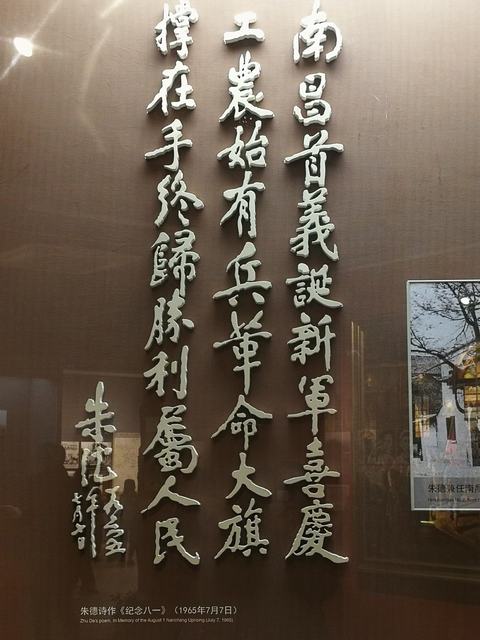 南昌首義誕新軍喜慶
工農始有兵革命大旗
撑在手終歸勝利屬人民
朱德
七月七日
朱德诗作《纪念八一》（1965年7月7日）
Zhu De's poem, In Memory of the August 1 Nanchang Uprising (July 7, 1965)
朱德兼任南昌